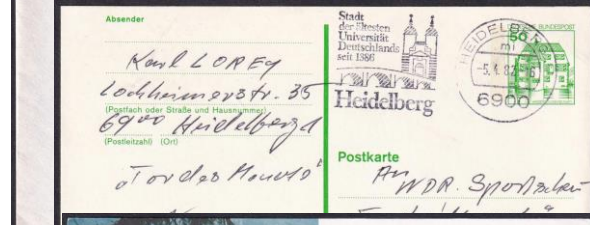 Absender
Karl LOREY
Lochheimerstr. 35
(Postfach oder Straße und Hausnummer)
6900 Heidelberg 1
(Postleitzahl) (Ort)
"Tor des Monats"
Stadt
der ältesten
Universität
Deutschlands
seit 1386
Heidelberg
HEIDELBERG
mi
-5.4.82-
6900
50
DEUTSCHE BUNDESPOST
Postkarte
An
WDR. Sportschau